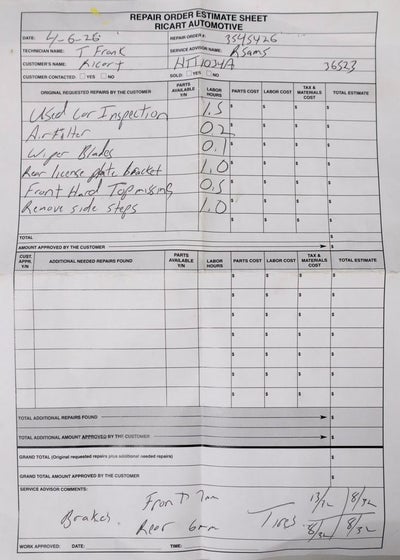 REPAIR ORDER ESTIMATE SHEET
RICART AUTOMOTIVE
DATE: 4-6-26 REPAIR ORDER #: 3545426
TECHNICIAN NAME: T Frank SERVICE ADVISOR NAME: RSams
CUSTOMER'S NAME: Ricart HT11034A 36523
CUSTOMER CONTACTED YES NO SOLD: YES NO
ORIGINAL REQUESTED REPAIRS BY THE CUSTOMER PARTS AVAILABLE Y/N LABOR HOURS PARTS COST LABOR COST TAX & MATERIALS COST TOTAL ESTIMATE
Used Car Inspection 1.5 $ $ $ $
Air Filter 0.2 $ $ $ $
Wiper Blades 0.1 $ $ $ $
Rear license plate bracket 1.0 $ $ $ $
Front Hard Top missing 0.5 $ $ $ $
Remove side steps 1.0 $ $ $ $
TOTAL $
AMOUNT APPROVED BY THE CUSTOMER $
CUST. APPR. Y/N ADDITIONAL NEEDED REPAIRS FOUND PARTS AVAILABLE Y/N LABOR HOURS PARTS COST LABOR COST TAX & MATERIALS COST TOTAL ESTIMATE
$ $ $ $
$ $ $ $
$ $ $ $
$ $ $ $
$ $ $ $
$ $ $ $
$ $ $ $
TOTAL ADDITIONAL REPAIRS FOUND $
TOTAL ADDITIONAL AMOUNT APPROVED BY THE CUSTOMER $
GRAND TOTAL (Original requested repairs plus additional needed repairs) $
GRAND TOTAL AMOUNT APPROVED BY THE CUSTOMER $
SERVICE ADVISOR COMMENTS:
Brakes Front 7mm Tires 13/32 8/32
Rear 6mm 8/32 8/32
WORK APPROVED: DATE: TIME: